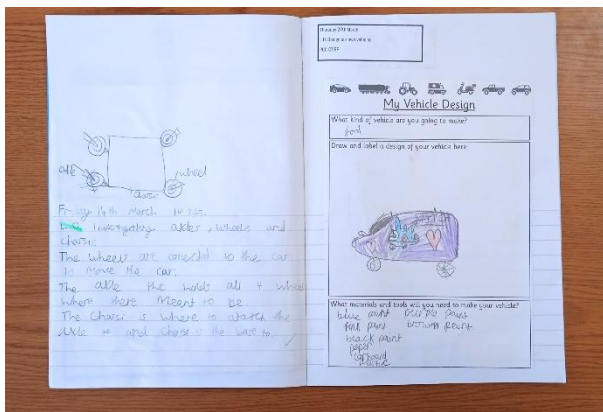 axle
wheel
Chasis
Friday 14th March
investigating axles, wheels and
chasis.
The wheels are conected to the car
to move the car.
The axle the holds all 4 wheels
where there meant to be
The Chasis is where to atatch the
axle to and chasis is the base to
Thursday 27th March
My Vehicle Design
What kind of vehicle are you going to make?
Draw and label a design of your vehicle here
What materials and tools will you need to make your vehicle?
blue paint purple paint
pink paint brown paint
black paint
paper